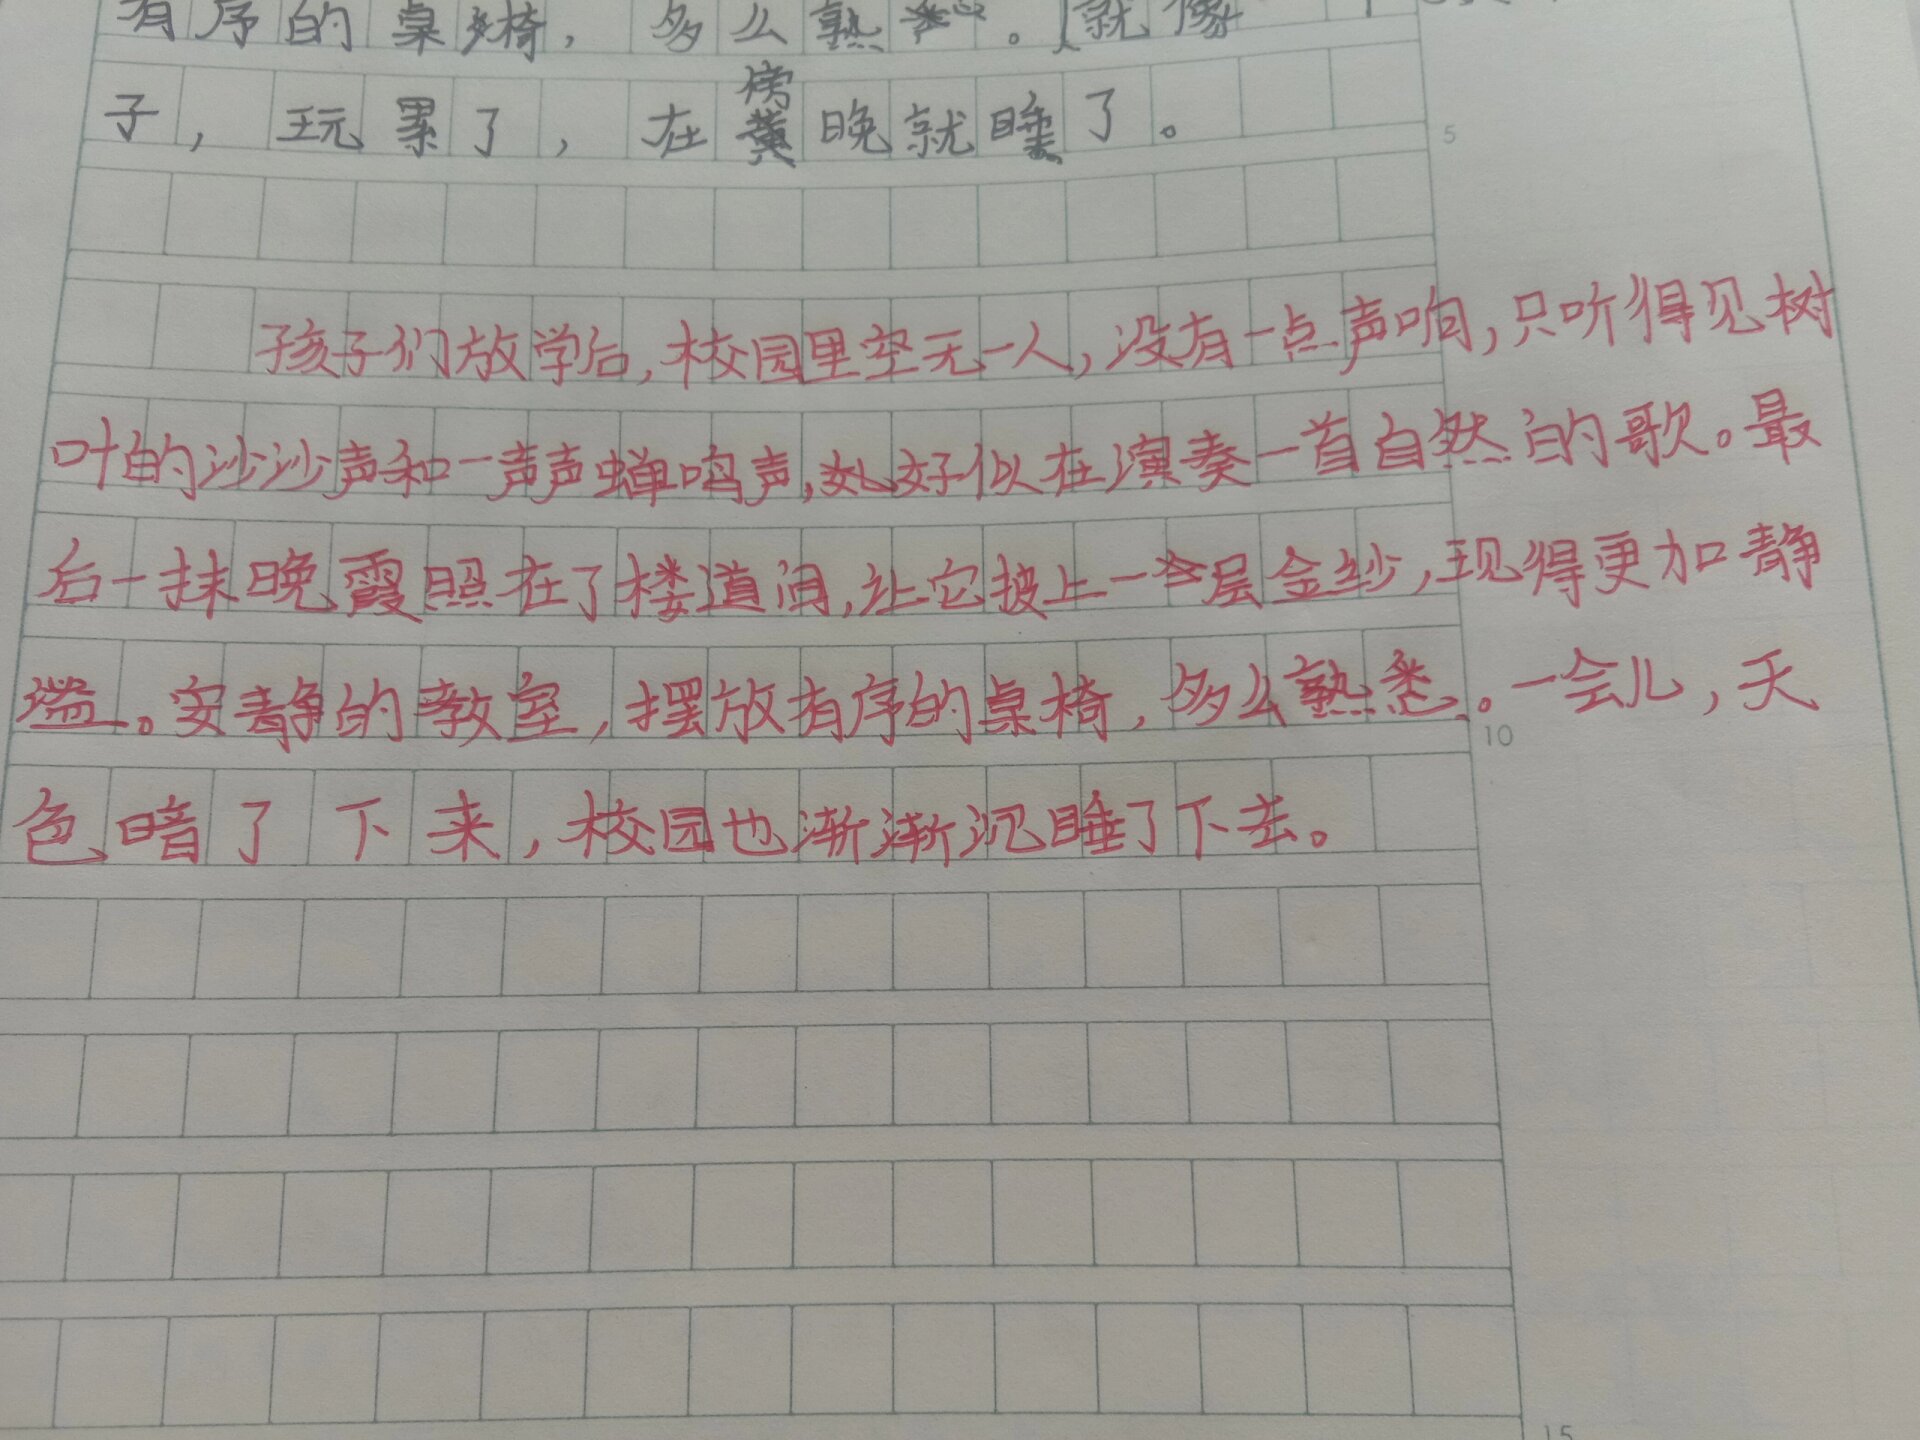 有序的桌椅，多么熟悉。就像
子，玩累了，在傍晚就睡了。
5
孩子们放学后，校园里空无一人，没有一点声响，只听得见树
叶的沙沙声和一声声蝉鸣声，好似在演奏一首自然的歌。最
后一抹晚霞照在了楼道间，让它披上一层金纱，现得更加静
谧。安静的教室，摆放有序的桌椅，多么熟悉。一会儿，天
10
色暗了下来，校园也渐渐沉睡了下去。
15